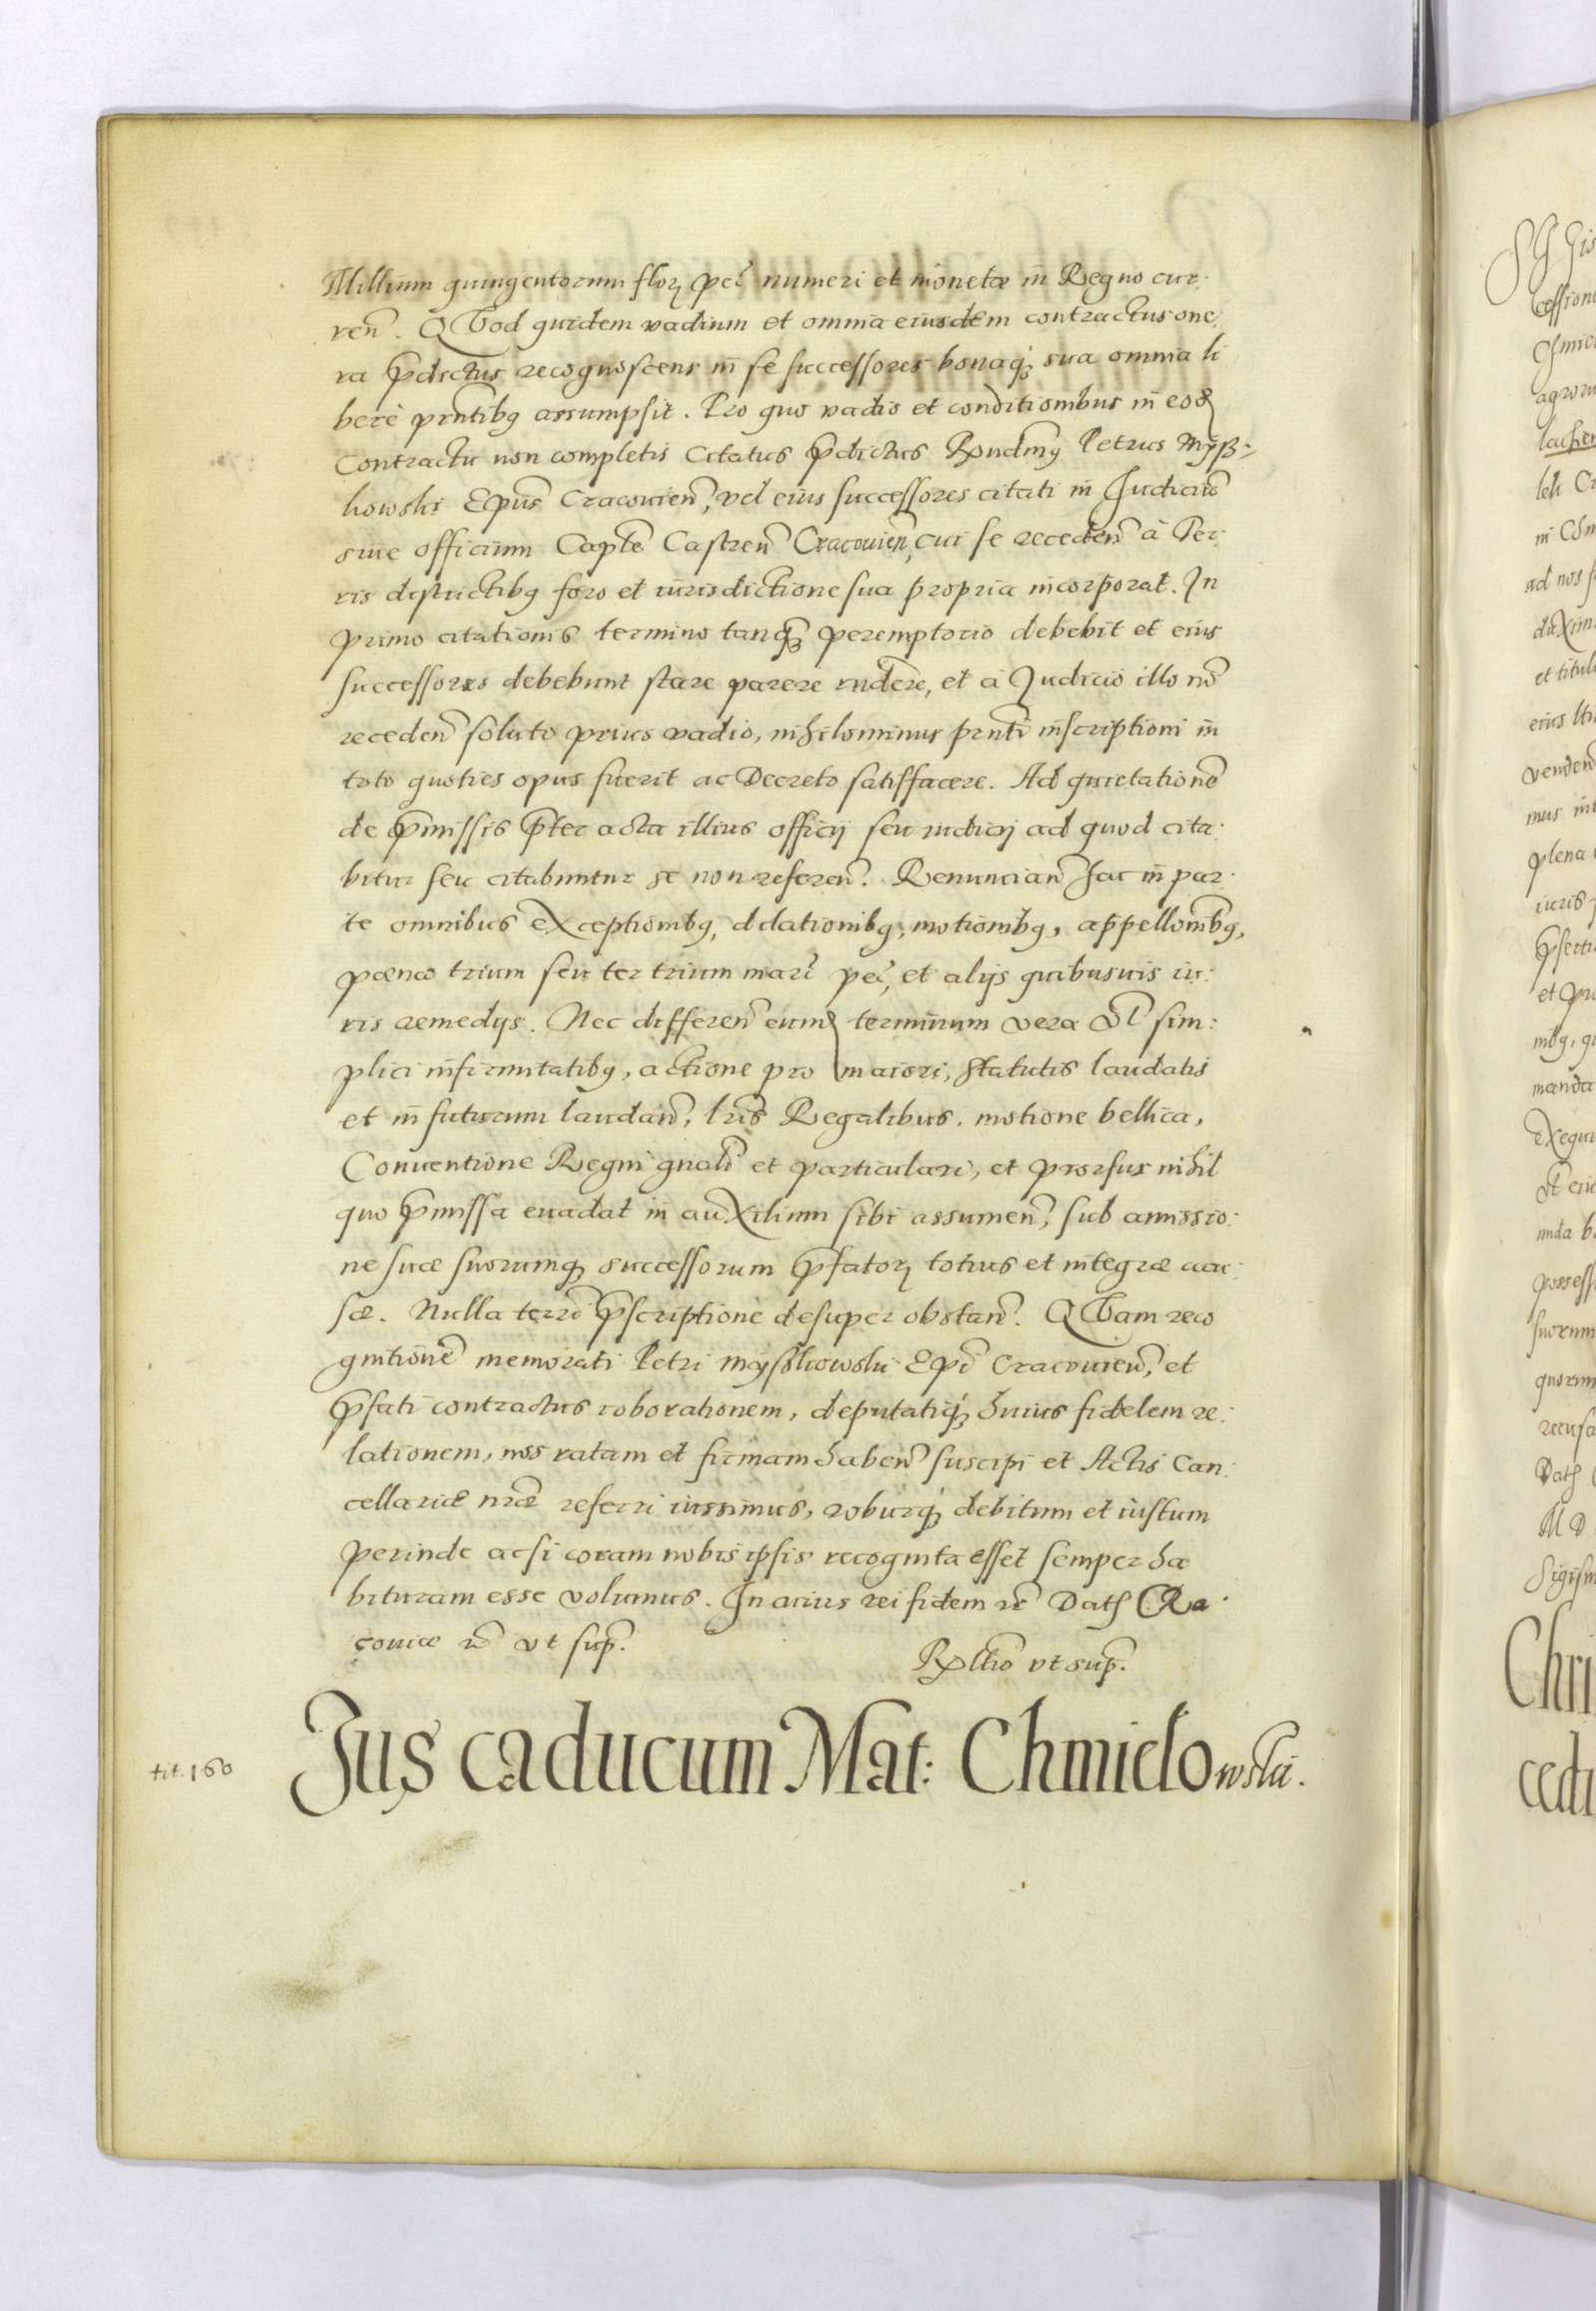 Millium quingentorum floꝝ peĉ numeri et monetæ in Regno cur:
reñ. Quod quidem vadium et omnia eiusdem contractus one:
ra p̃dictus recognoscens in se successores bonaq; sua omnia li
berè pñtibꝯ assumpsit. Pro quo vadio et conditionibus in eod
contractu non completis citatus p̃dictus Rx̃ndmꝯ Petrus Myß:
kowski Epũs Cracovieñ, vel eius successores citati in Judiciũ
siue officium Capłe Castreñ Cracovieñ, cui se recedeñ à Ter:
ris districtibꝯ foro et iurisdictione sua propria incorporat. In
primo citationis termino tanq̃ peremptorio debebit et eius
successores debebunt stare parere rñdere, et à Judicio illo nõ
recedeñ soluto prius vadio, nihilominus pr̃nti inscriptioni in
toto quoties opus fuerit ac Decreto satisfacere. Ad quietationẽ
de p̃missis p̃ter acta illius officij seu iudicij ad quod cita:
bitur seu citabuntur se non refereñ. Renunciañ hac in par:
te omnibus exceptionibꝯ, dilationibꝯ, motionibꝯ, appellõnibꝯ,
pœnæ trium seu ter trium marĉ peĉ, et alijs quibusuis iu:
ris remedijs. Nec differeñ eumd terminum vera vl sim:
plici infirmitatibꝯ, actione pro maiori, statutis laudatis
et in futurum laudañ, lr̃is Regalibus, motione bellica,
Conuentione Regni gnali et particulari, et prorsus nihil
quo p̃missa euadat in auxilium sibi assumeñ, sub amissio:
ne suæ suorumq; successorum p̃fatoꝝ totius et integræ cau:
sæ. Nulla terrẽ p̃scriptione desuper obstañ. Quam reco
gnitionẽ memorati Petri Myszkowski Epĩ Cracovieñ, et
p̃fati contractus roborationem, deputatiq; huius fidelem re:
lationem, nos ratam et firmam habeñ suscipi et Actis Can:
cellariæ nr̃æ referri iussimus, roburq; debitum et iustum
perinde acsi coram nobis ipsis recognita esset semper ha
bituram esse volumus. In cuius rei fidem rc̃ Datħ CRa:
couiæ rc̃ vt sup̃.
Rx̃ltio vt sup̃.
tit. 160
Jus caducum Mat: Chmielowski.